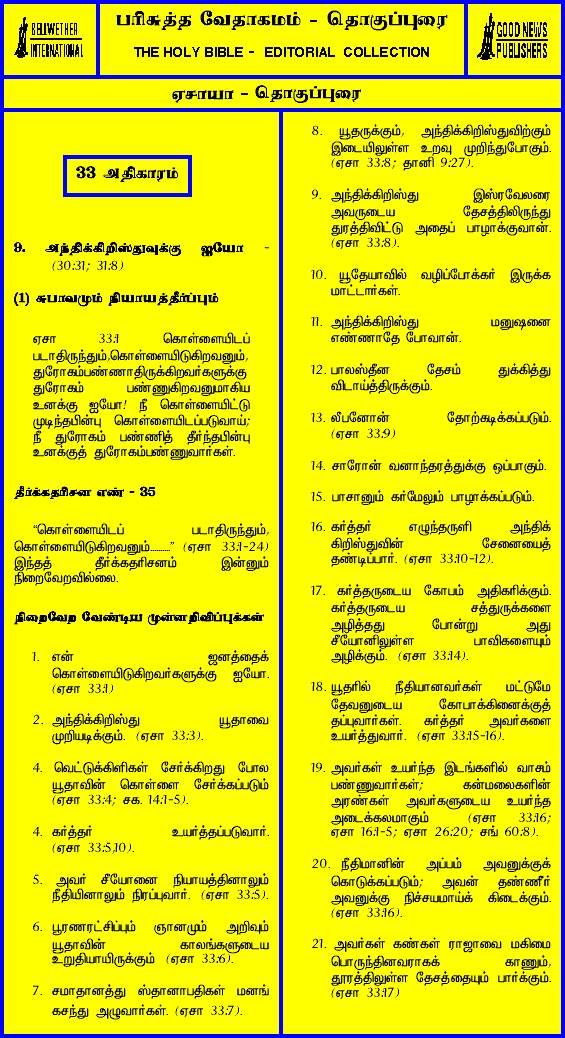 BELLWETHER
INTERNATIONAL
பரிசுத்த வேதாகமம் - தொகுப்புரை
THE HOLY BIBLE - EDITORIAL COLLECTION
GOOD NEWS
PUBLISHERS
ஏசாயா - தொகுப்புரை
33 அதிகாரம்
9. அந்திக்கிறிஸ்துவுக்கு ஐயோ -
(30:31; 31:8)
(1) சுபாவமும் நியாயத்தீர்ப்பும்
ஏசா 33:1 கொள்ளையிடப்
படாதிருந்தும்,கொள்ளையிடுகிறவனும்,
துரோகம்பண்ணாதிருக்கிறவர்களுக்கு
துரோகம் பண்ணுகிறவனுமாகிய
உனக்கு ஐயோ! நீ கொள்ளையிட்டு
முடிந்தபின்பு கொள்ளையிடப்படுவாய்;
நீ துரோகம் பண்ணித் தீர்ந்தபின்பு
உனக்குத் துரோகம்பண்ணுவார்கள்.
தீர்க்கதரிசன எண் - 35
“கொள்ளையிடப் படாதிருந்தும்,
கொள்ளையிடுகிறவனும்.........” (ஏசா 33:1-24)
இந்தத் தீர்க்கதரிசனம் இன்னும்
நிறைவேறவில்லை.
நிறைவேற வேண்டிய முன்னறிவிப்புக்கள்
1. என் ஜனத்தைக்
கொள்ளையிடுகிறவர்களுக்கு ஐயோ.
(ஏசா 33:1)
2. அந்திக்கிறிஸ்து யூதாவை
முறியடிக்கும். (ஏசா 33:3).
4. வெட்டுக்கிளிகள் சேர்க்கிறது போல
யூதாவின் கொள்ளை சேர்க்கப்படும்
(ஏசா 33:4; சக. 14:1-5).
4. கர்த்தர் உயர்த்தப்படுவார்.
(ஏசா 33:5,10).
5. அவர் சீயோனை நியாயத்தினாலும்
நீதியினாலும் நிரப்புவார். (ஏசா 33:5).
6. பூரணரட்சிப்பும் ஞானமும் அறிவும்
யூதாவின் காலங்களுடைய
உறுதியாயிருக்கும் (ஏசா 33:6).
7. சமாதானத்து ஸ்தானாபதிகள் மனங்
கசந்து அழுவார்கள். (ஏசா 33:7).
8. யூதருக்கும், அந்திக்கிறிஸ்துவிற்கும்
இடையிலுள்ள உறவு முறிந்துபோகும்.
(ஏசா 33:8; தானி 9:27).
9. அந்திக்கிறிஸ்து இஸ்ரவேலரை
அவருடைய தேசத்திலிருந்து
துரத்திவிட்டு அதைப் பாழாக்குவான்.
(ஏசா 33:8).
10. யூதேயாவில் வழிப்போக்கர் இருக்க
மாட்டார்கள்.
11. அந்திக்கிறிஸ்து மனுஷனை
எண்ணாதே போவான்.
12. பாலஸ்தீன தேசம் துக்கித்து
விடாய்த்திருக்கும்.
13. லீபனோன் தோற்கடிக்கப்படும்.
(ஏசா 33:9)
14. சாரோன் வனாந்தரத்துக்கு ஒப்பாகும்.
15. பாசானும் கர்மேலும் பாழாக்கப்படும்.
16. கர்த்தர் எழுந்தருளி அந்திக்
கிறிஸ்துவின் சேனையைத்
தண்டிப்பார். (ஏசா 33:10-12).
17. கர்த்தருடைய கோபம் அதிகரிக்கும்.
கர்த்தருடைய சத்துருக்களை
அழித்தது போன்று அது
சீயோனிலுள்ள பாவிகளையும்
அழிக்கும். (ஏசா 33:14).
18. யூதரில் நீதியானவர்கள் மட்டுமே
தேவனுடைய கோபாக்கினைக்குத்
தப்புவார்கள். கர்த்தர் அவர்களை
உயர்த்துவார். (ஏசா 33:15-16).
19. அவர்கள் உயர்ந்த இடங்களில் வாசம்
பண்ணுவார்கள்; கன்மலைகளின்
அரண்கள் அவர்களுடைய உயர்ந்த
அடைக்கலமாகும் (ஏசா 33:16;
ஏசா 16:1-5; ஏசா 26:20; சங் 60:8).
20. நீதிமானின் அப்பம் அவனுக்குக்
கொடுக்கப்படும்; அவன் தண்ணீர்
அவனுக்கு நிச்சயமாய்க் கிடைக்கும்.
(ஏசா 33:16).
21. அவர்கள் கண்கள் ராஜாவை மகிமை
பொருந்தினவராகக் காணும்,
தூரத்திலுள்ள தேசத்தையும் பார்க்கும்.
(ஏசா 33:17)